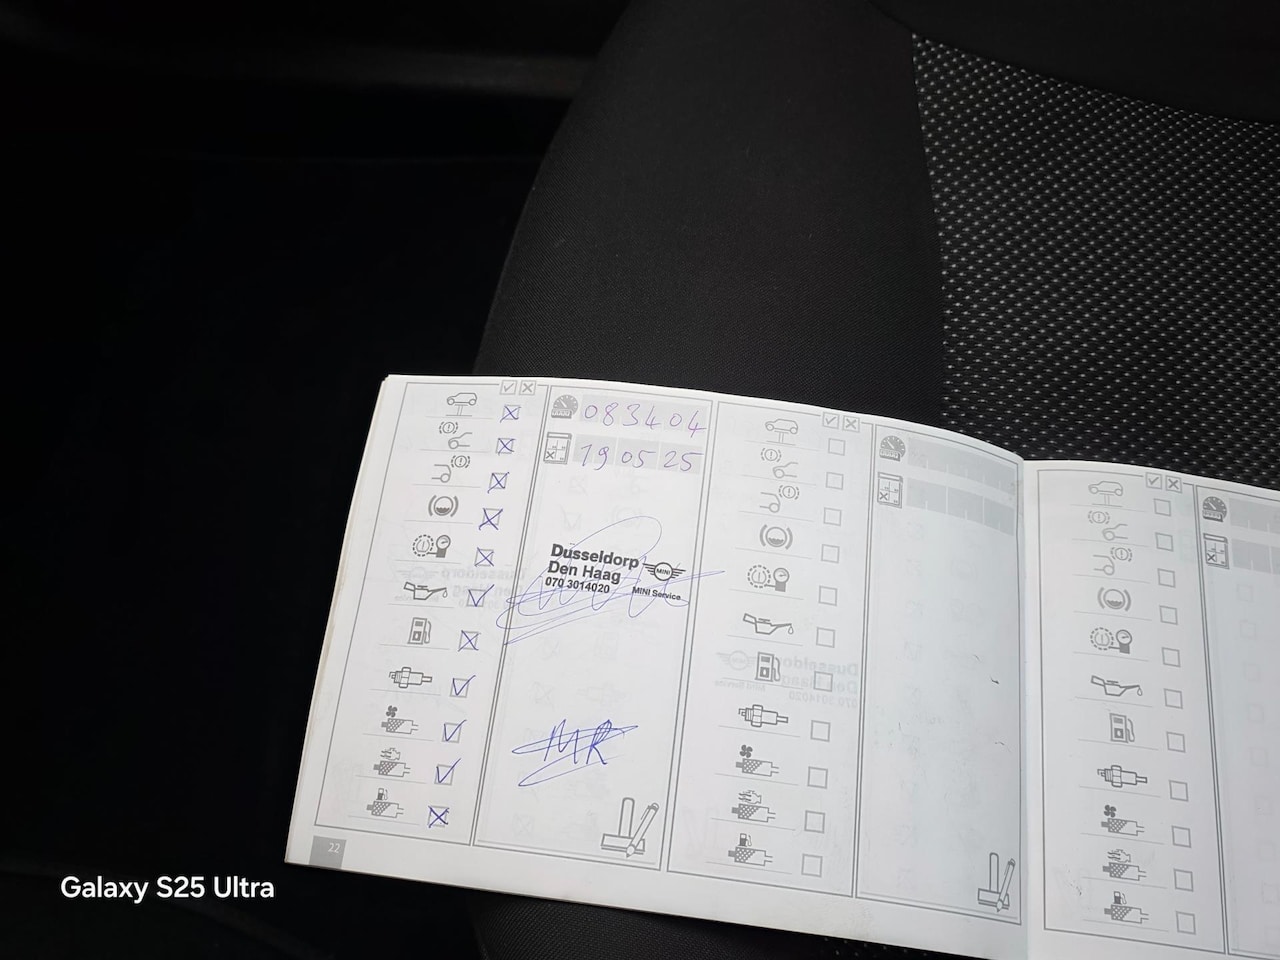 083404
19 05 25
Dusseldorp
Den Haag
070 3014020
MINI
MINI Service
MR
22
Galaxy S25 Ultra